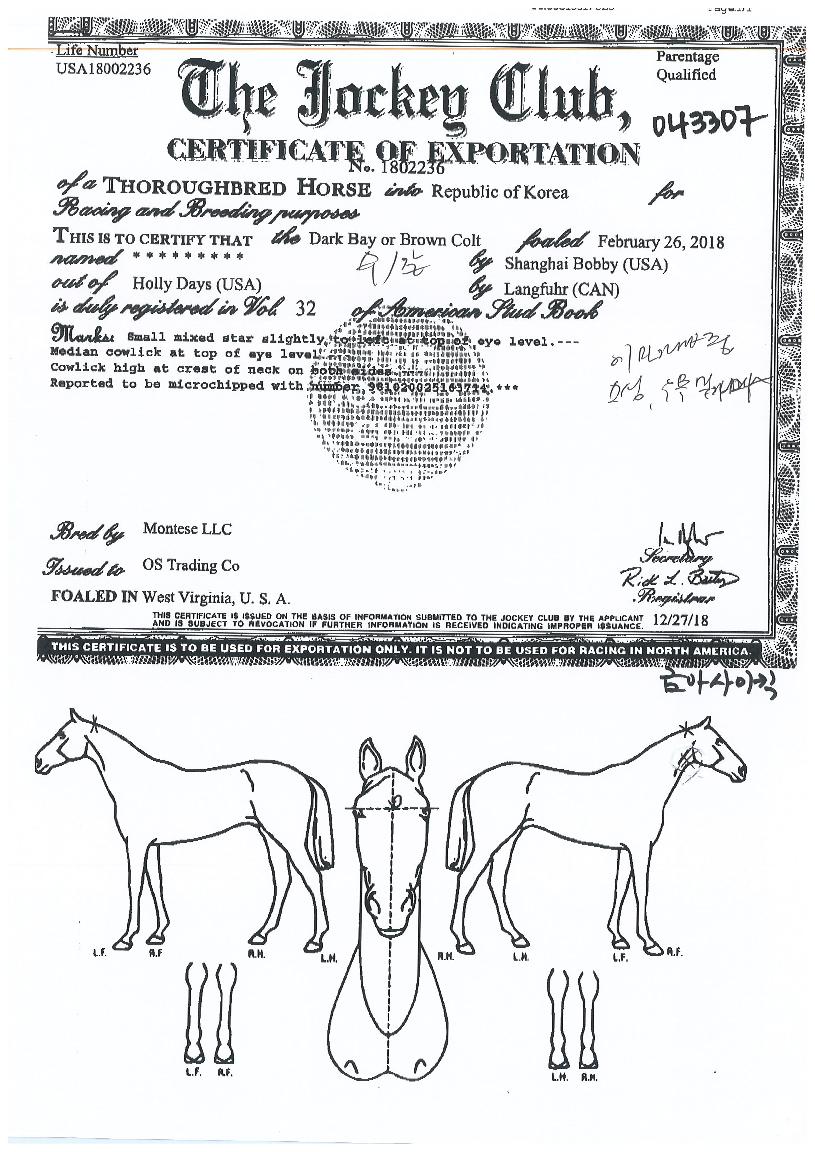 Life Number
USA18002236
Parentage
Qualified
The Jockey Club,
043307
CERTIFICATE OF EXPORTATION
No. 1802236
of a THOROUGHBRED HORSE into Republic of Korea for
Racing and Breeding purposes
THIS IS TO CERTIFY THAT the Dark Bay or Brown Colt foaled February 26, 2018
named * * * * * * * * * by Shanghai Bobby (USA)
out of Holly Days (USA) by Langfuhr (CAN)
is duly registered in Vol. 32 of American Stud Book
Marks: Small mixed star slightly to left at top of eye level.---
Median cowlick at top of eye level
Cowlick high at crest of neck on both sides
Reported to be microchipped with number
Bred by Montese LLC
Issued to OS Trading Co
Secretary
Rick L. Bailey
Registrar
FOALED IN West Virginia, U. S. A.
THIS CERTIFICATE IS ISSUED ON THE BASIS OF INFORMATION SUBMITTED TO THE JOCKEY CLUB BY THE APPLICANT
AND IS SUBJECT TO REVOCATION IF FURTHER INFORMATION IS RECEIVED INDICATING IMPROPER ISSUANCE. 12/27/18
THIS CERTIFICATE IS TO BE USED FOR EXPORTATION ONLY. IT IS NOT TO BE USED FOR RACING IN NORTH AMERICA.
L.F. R.F. R.H. L.H. R.H. L.H. L.F. R.F.
L.F. R.F. L.H. R.H.